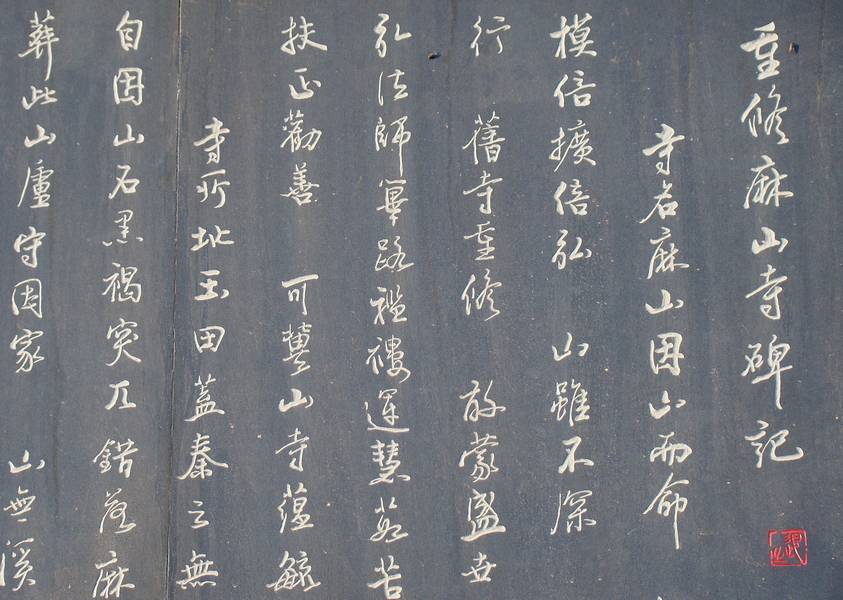 重修麻山寺碑記
寺名麻山因山而命
模倍擴倍弘 山雖不深
行 舊寺重修 欣蒙盛世
弘法師篳路襤褸運慧茹苦
扶正勸善 可冀山寺蘊毓
寺所址玉田蓋秦之無
自因山石黑褐突兀錯落麻
葬此山廬守因家 山無溪